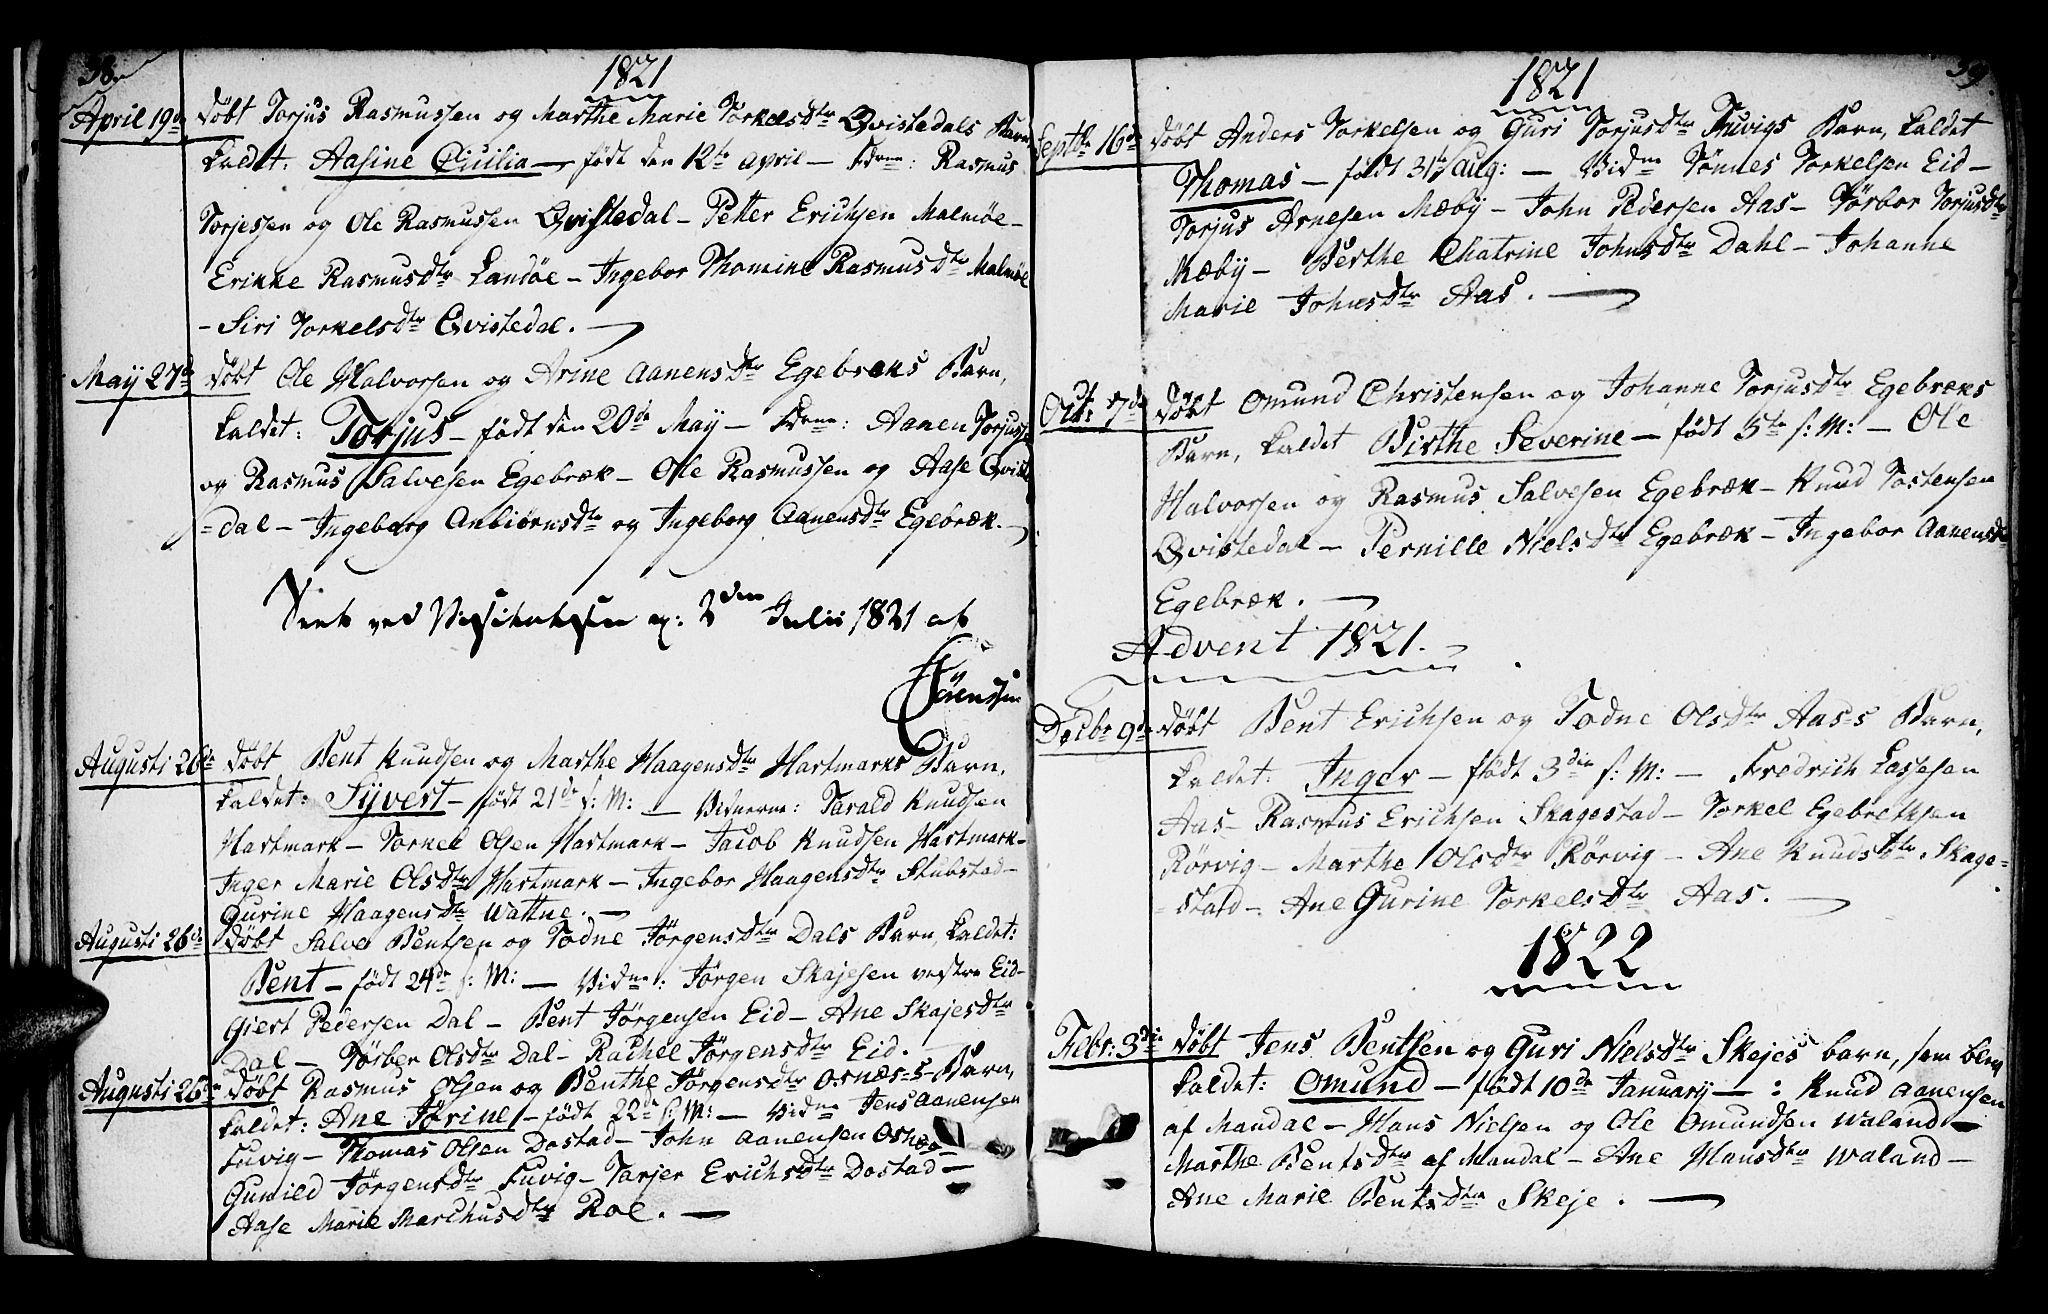 38.
1821
April 19de döbt Torjus Rasmussen og Marthe Marie Torkelsdtr Qvistedals Barn,
kaldet: Aasine Cicilia — födt den 12te april — Fdrne: Rasmus
Torjessen og Ole Rasmussen Qvistedal — Petter Erichsen Malmöe —
Erikke Rasmusdtr Landöe — Ingebor Thomine Rasmusdtr Malmöe
— Siri Torkelsdtr Qvistedal. —
May 27de döbt Ole Halvorsen og Arine Aanensdtr Egebræks Barn,
kaldet: Torjus — födt den 20de May — Fdrne: Aanen Torjussen
og Rasmus Salvesen Egebræk — Ole Rasmussen og Aase Qviste
=dal — Ingeborg Anbiörnsdtr og Ingeborg Aanensdtr Egebræk. —
Seet ved Visitatsen 2den Julii 1821 af
Sörenssen
Augusti 26de döbt Bent Knudsen og Marthe Haagensdtr Hartmarks Barn,
kaldet: Syvert — födt 21de s: M: — Vidnerne: Tarald Knudsen
Hartmark — Torkel Olsen Hartmark — Jacob Knudsen Hartmark —
Inger Marie Olsdtr Hartmark — Ingebor Haagensdtr Stubstad —
Gurine Haagensdtr Wattne. —
Augusti 26de döbt Salve Bentsen og Todne Jörgensdtr Dals Barn, kaldet:
Bent — födt 24de s: M: — Vidne: Jörgen Skajesen vestre Eid —
Giert Pedersen Dal — Bent Jörgensen Eid — Ane Skajesdtr
Dal — Törber Olsdtr Dal — Rachel Jörgensdtr Eid.
Augusti 26de döbt Rasmus Olsen og Benthe Jörgensdtr Osnæs's Barn,
kaldet: Ane Jörine — födt 22de s: M: — Vidne Jens Aanensen
Fuvig — Thomas Olsen Dostad — John Aanensen Osnæs —
Gunild Jörgensdtr Fuvig — Torjer Erichsdtr Dostad —
Aase Marie Marchusdtr Roe. —
39.
1821
Septbr 16de döbt Anders Torkelsen og Guri Torjusdtr Fuvigs Barn, kaldet
Thomas — födt 31te aug: — Vidne Tönnes Torkelsen Eid —
Torjus Arnesen Mæby — John Pedersen Aas — Törbor Torjusdtr
Mæby — Berthe Chatrine Johnsdtr Dahl — Johanne
Marie Johnsdtr Aas. —
Oct: 7de döbt Omund Christensen og Johanne Torjusdtr Egebræks
Barn, kaldet Birthe Severine — födt 5te s: M: — Ole
Halvorsen og Rasmus Salvesen Egebræk — Knud Tostensen
Qvistedal — Pernille Nielsdtr Egebræk — Ingebor Aanensdtr
Egebræk. —
Advent 1821.
Decbr 9de döbt Bent Erichsen og Todne Olsdtr Aas's Barn,
kaldet: Inger — födt 3die s: M: — Fredrich Lassesen
Aas — Rasmus Erichsen Skagestad — Torkel Egebrethsen
Rörvig — Marthe Olsdtr Rörvig — Ane Knudsdtr Skage=
=stad — Ane Gurine Torkelsdtr Aas. —
1822
Febr: 3die döbt Jens Bentsen og Guri Nielsdtr Skejes barn, som blev
kaldet: Omund — födt 10de January — : Knud Aanensen
af Mandal — Hans Nielsen og Ole Omundsen Waland —
Marthe Bentsdtr af Mandal — Ane Hansdtr Waland —
Ane Marie Bentsdtr Skeje. —